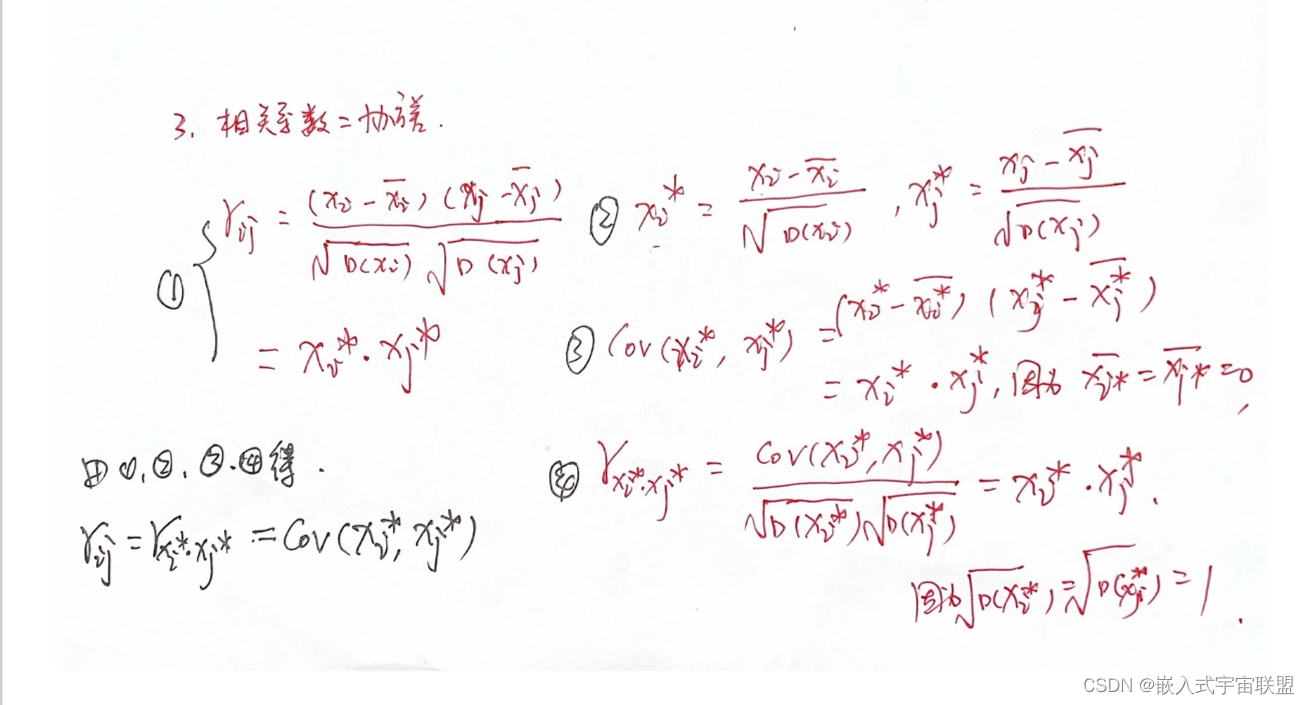 3. 相关系数=协方差.
① { r_ij = (x_i - x̅_i)(x_j - x̅_j) / √D(x_i) √D(x_j)
= x_i* · x_j*
② x_i* = (x_i - x̅_i) / √D(x_i) , x_j* = (x_j - x̅_j) / √D(x_j)
③ Cov(x_i*, x_j*) = (x_i* - x̅_i*) (x_j* - x̅_j*)
= x_i* · x_j*, 因为 x̅_i* = x̅_j* = 0,
④ r_{x_i*·x_j*} = Cov(x_i*, x_j*) / √D(x_i*) √D(x_j*) = x_i* · x_j*.
因为 √D(x_i*) = √D(x_j*) = 1.
由①, ②, ③. ④得.
r_ij = r_{x_i*·x_j*} = Cov(x_i*, x_j*)
CSDN @嵌入式宇宙联盟